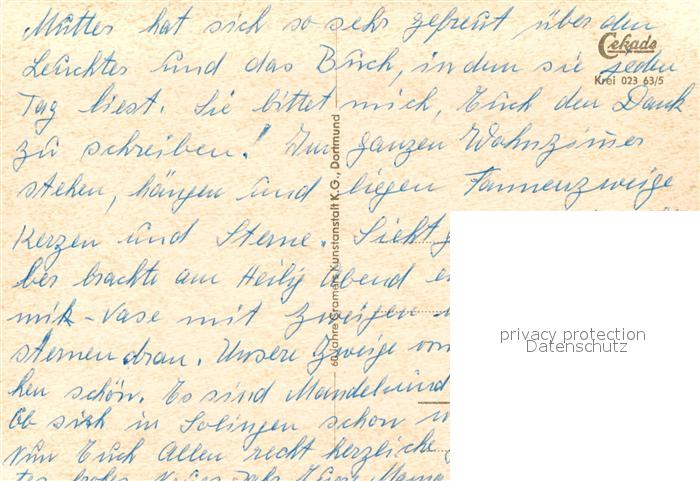 Mutter hat sich so sehr gefreut über den
Cekade
Leuchter und das Buch, in dem sie jeden
Krei 023 63/5
Tag liest. Sie bittet mich, Euch den Dank
zu schreiben! Im ganzen Wohnzimmer
stehen, hängen und liegen Tannenzweige
Kerzen und Sterne. Sieht
ber brachte am Heilig Abend
mik-Vase mit Zweigen
sternen dran. Unsere Zweige
hen schön. Es sind Mandel und
Ob sich in Solingen schon
Nun Euch Allen recht herzliche
60 Jahre Cramers Kunstanstalt K.G., Dortmund
privacy protection
Datenschutz